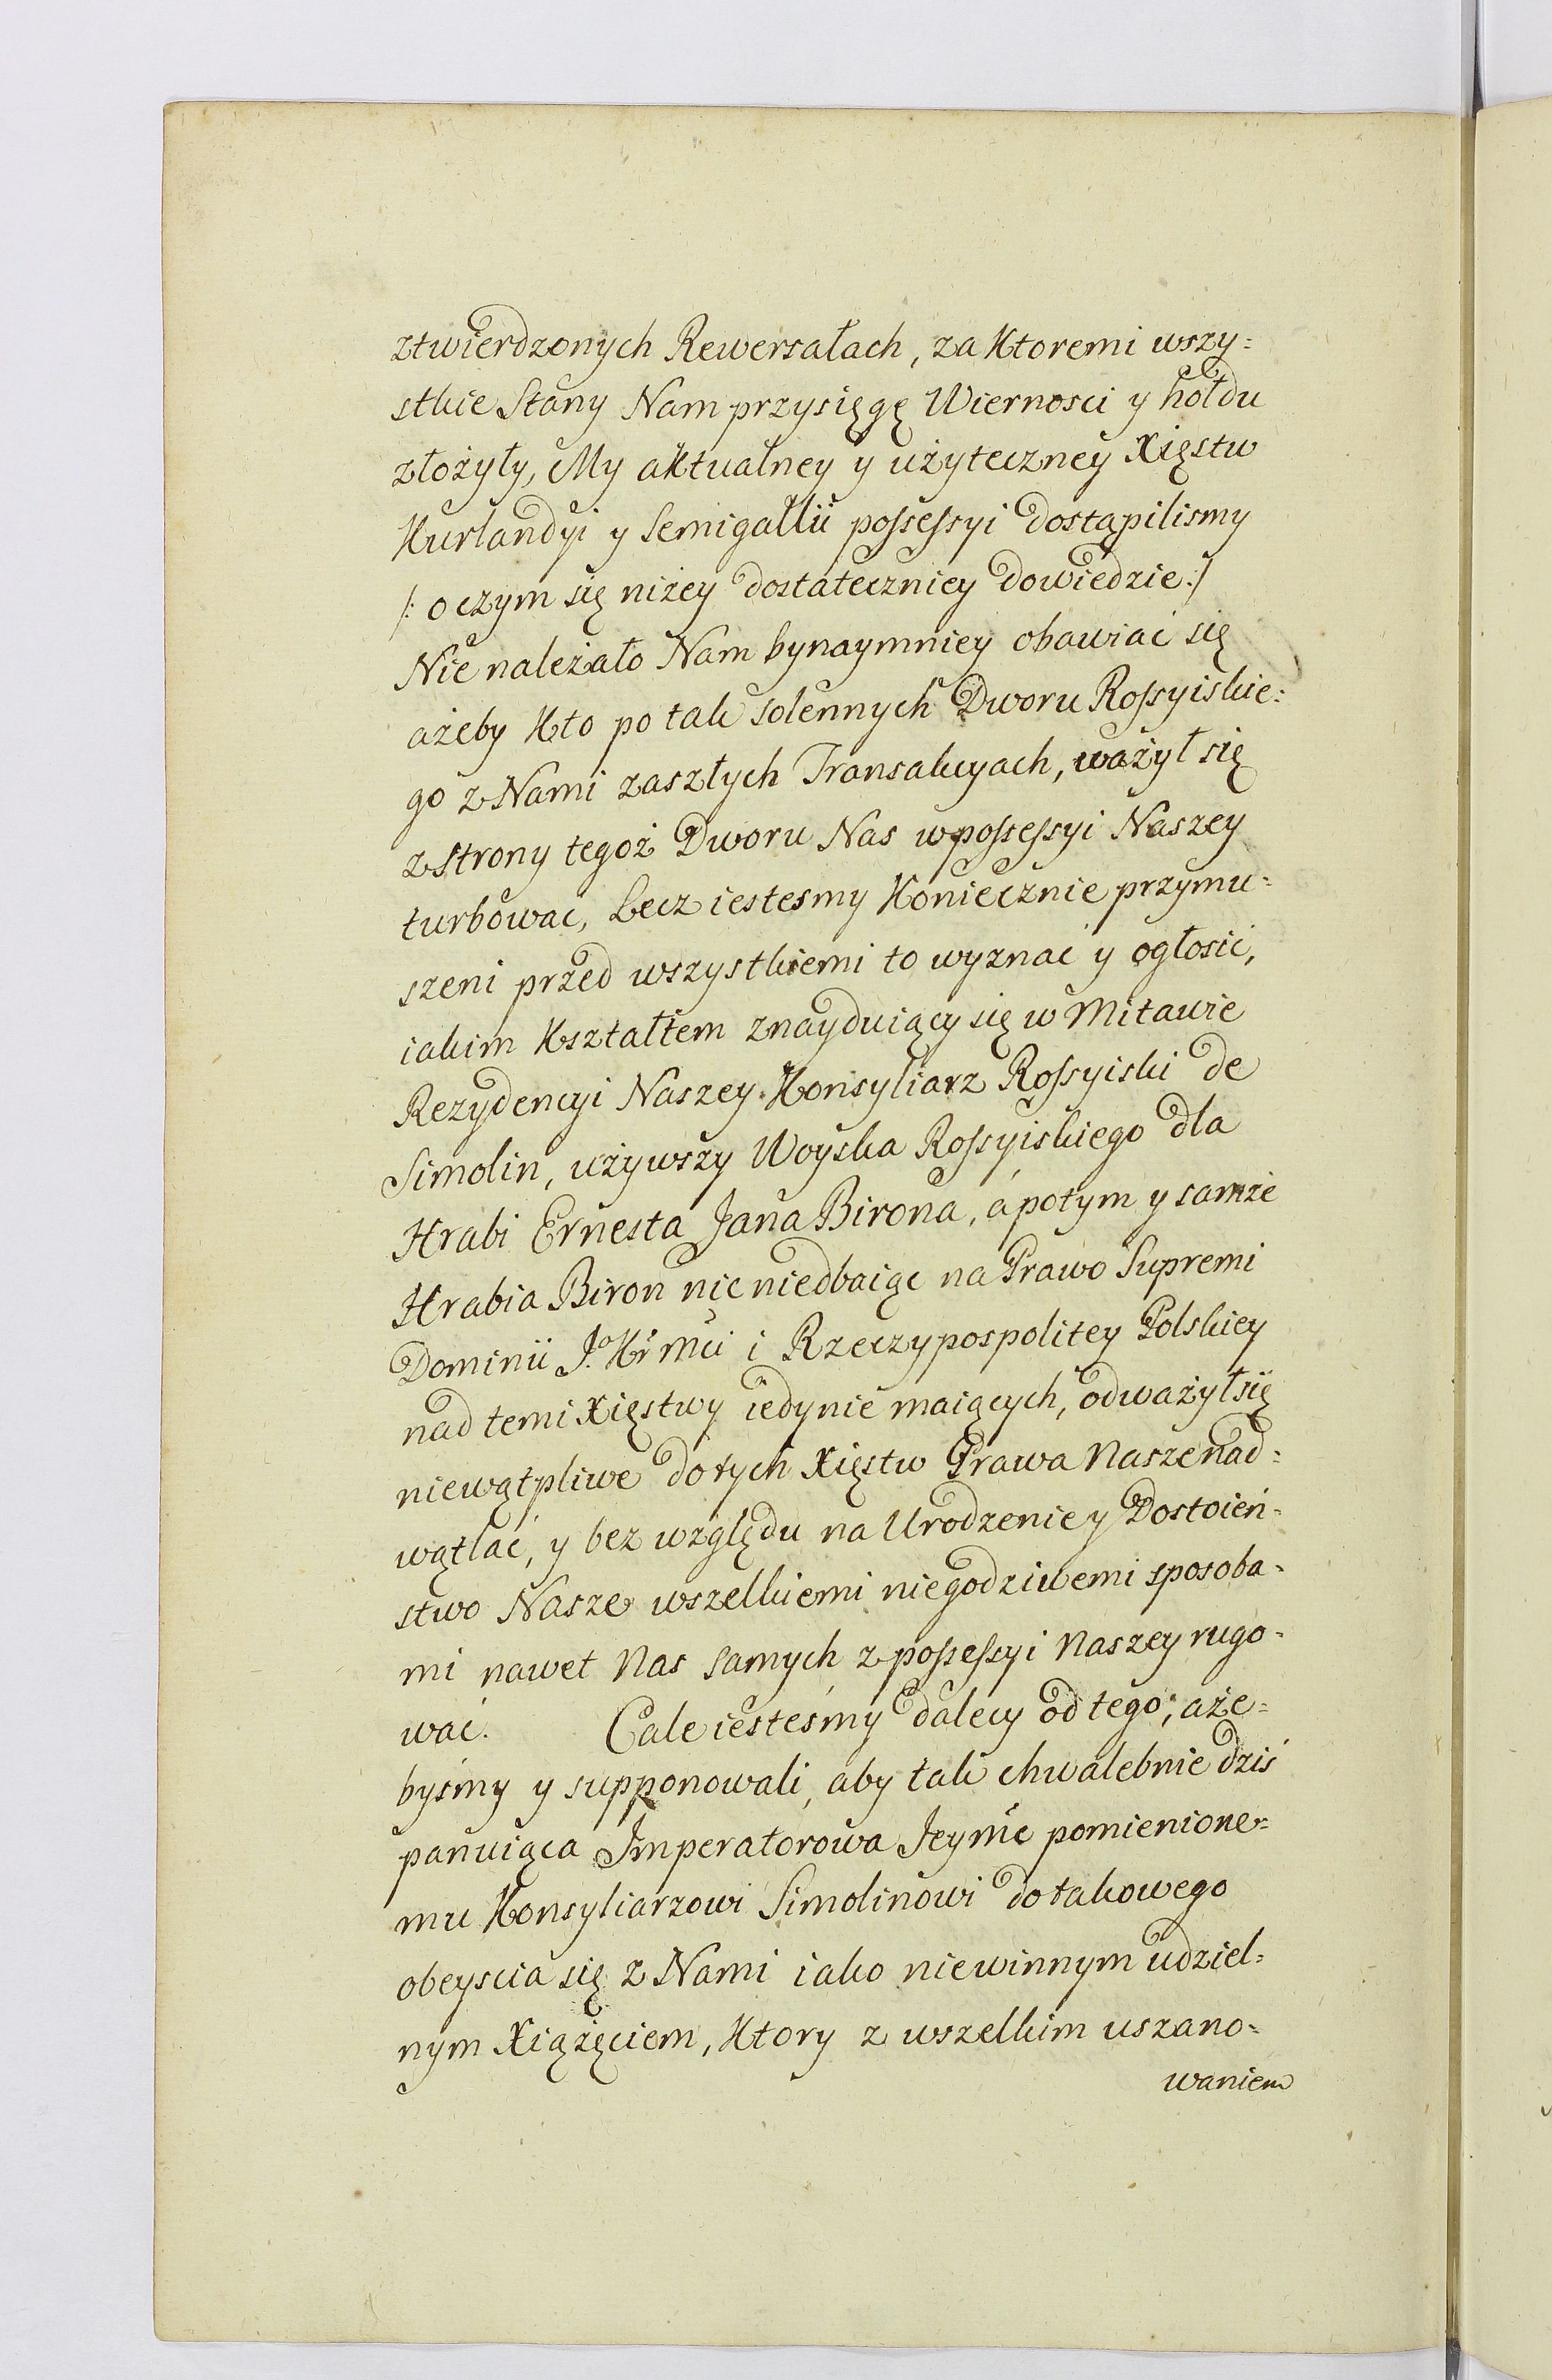 ztwierdzonych Rewersałach, za Ktoremi wszy=
stkie Stany Nam przysięgę Wiernosci y hołdu
złożyły, My aktualney y użyteczney Xięstw
Kurlandyi y Semigallii possessyi dostąpilismy
/: o czym się niżey dostateczniey dowiedzie :/
Nie należało Nam bynaymniey obawiać się
ażeby Kto po tak solennych Dworu Rossyiskie=
go z Nami zaszłych Transakcyach, ważył się
z strony tegoż Dworu Nas w possessyi Naszey
turbować, Lecz iestesmy Koniecznie przymu=
szeni przed wszystkiemi to wyznać y ogłosić,
iakim Kształtem znayduiący się w Mitawie
Rezydencyi Naszey Konsyliarz Rossyiski de
Simolin, używszy Woyska Rossyiskiego dla
Hrabi Ernesta Jana Birona, á potym y samże
Hrabia Biron nic niedbaiąc na Prawo Supremi
Dominii J.º Kr̃ Mci i Rzeczypospolitey Polskiey
nad temi Xięstwy iedynie maiących, odważył się
niewątpliwe do tych Xięstw Prawa Nasze nad=
wątlać, y bez względu na Urodzenie y Dostoień=
stwo Nasze wszelkiemi niegodziwemi sposoba=
mi nawet Nas samych z possessyi Naszey rugo=
wać. Cale iesteśmy dalecy od tego; aże=
byśmy y supponowali, aby tak chwalebnie dziś
panuiąca Imperatorowa Jeymć pomienione=
mu Konsyliarzowi Simolinowi do takowego
obeyscia się z Nami iako niewinnym udziel=
nym Xiążęciem, Ktory z wszelkim uszano=
waniem